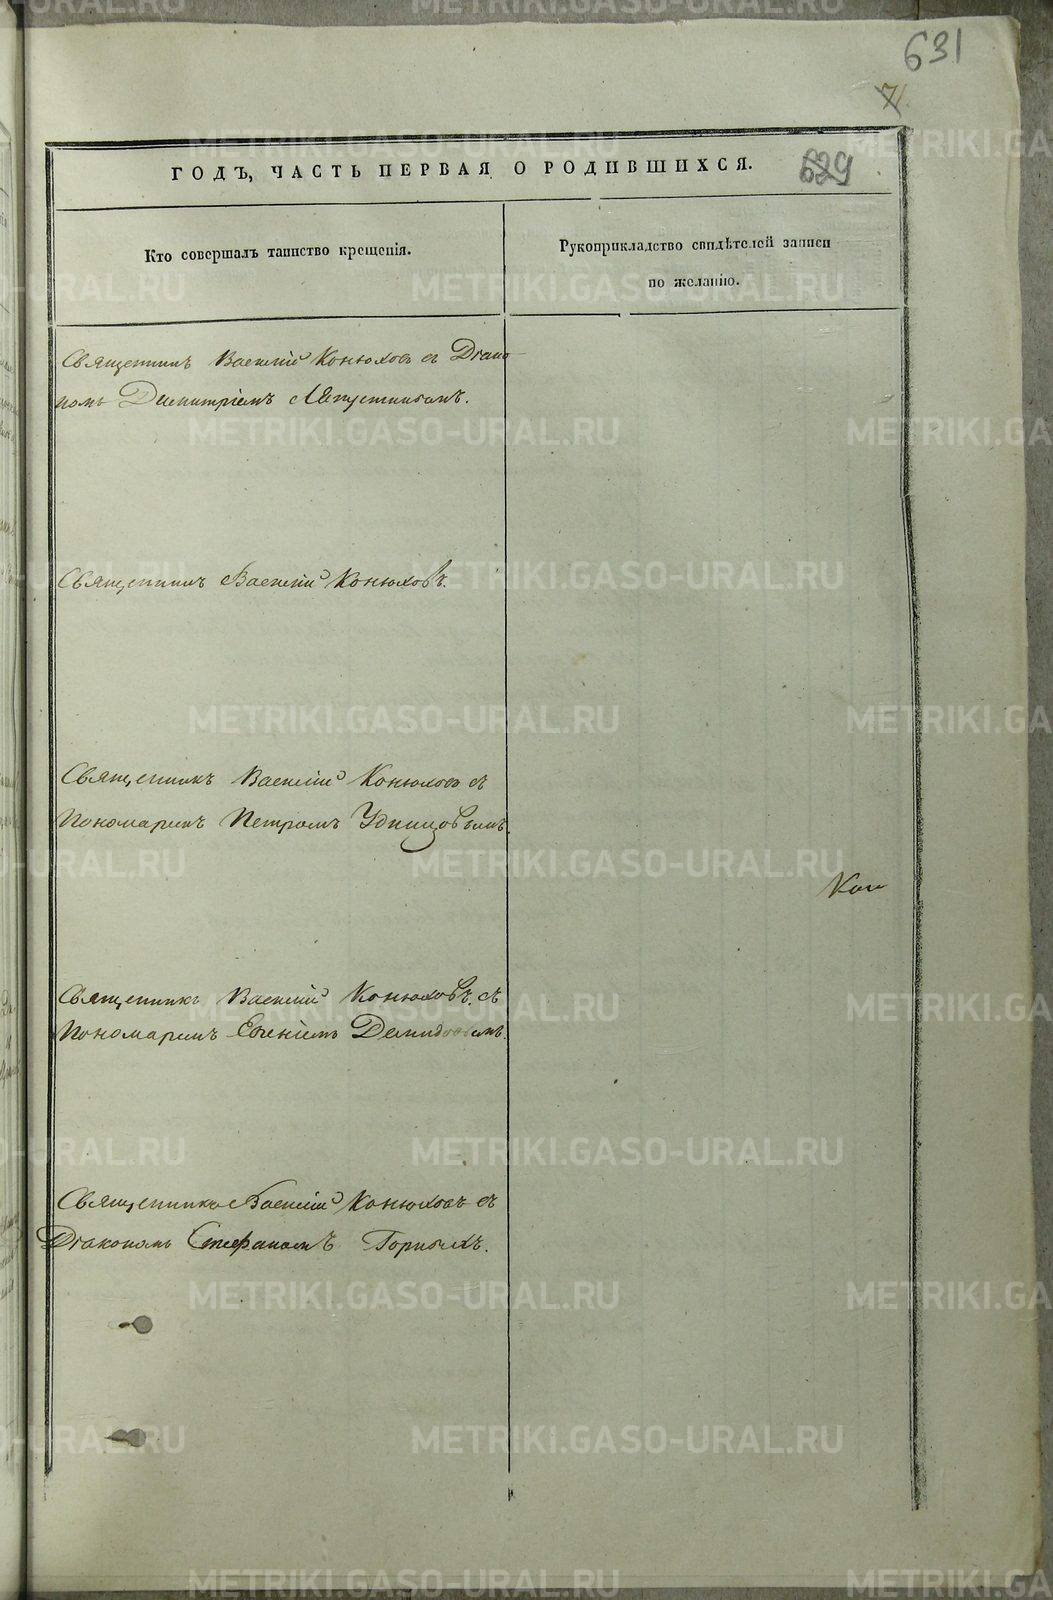 631
71
ГОДЪ, ЧАСТЬ ПЕРВАЯ О РОДИВШИХСЯ.
629
Кто совершалъ таинство крещенія.
Рукоприкладство свидѣтелей записи
по желанію.
Священникъ Василій Конюховъ съ Діако-
номъ Димитріемъ Августиновымъ.
Священникъ Василій Конюховъ.
Священникъ Василій Конюховъ съ
Пономаремъ Петромъ Удинцовымъ.
Священникъ Василій Конюховъ съ
Пономаремъ Евгеніемъ Демидовымъ.
Священникъ Василій Конюховъ съ
Діакономъ Стефаномъ Горныхъ.
METRIKI.GASO-URAL.RU